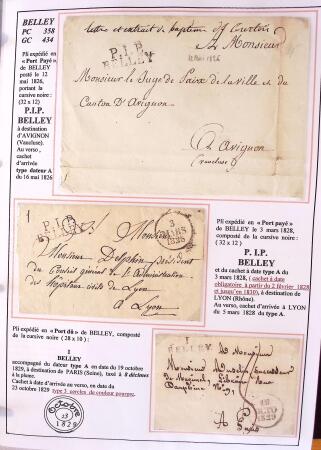 BELLEY
PC 358
GC 434
Pli expédié en
« Port Payé »
de BELLEY
posté le 12
mai 1826,
portant la
cursive noire :
(32 x 12)
P.I.P.
BELLEY
à destination
d'AVIGNON
(Vaucluse).
Au verso ,
cachet
d'arrivée
type dateur A
du 16 mai 1826
lettre et extrait de baptême
P.I.P
BELLEY
A Monsieur
Monsieur le Juge de Paix de la Ville et du
Canton D'Avignon
A Avignon
(Vaucluse)
P.I.P
BELLEY
3
MARS
1828
Monsieur
Monsieur Delphin président
du Conseil général de l'Administration
des hopitaux civils de Lyon
à Lyon
Pli expédié en « Port payé »
de BELLEY le 3 mars 1828,
composté de la cursive noire :
(32 x 12)
P.I.P.
BELLEY
et du cachet à date type A du
3 mars 1828, ( cachet à date
obligatoire à partir du 2 février 1828
et jusqu'en 1830), à destination de
LYON (Rhône).
Au verso, cachet d'arrivée à LYON
du 5 mars 1828 du type A.
Pli expédié en « Port dû » de BELLEY, composté
de la cursive noire ( 28 x 10 ) :
I
BELLEY
accompagné du dateur type A en date du 19 octobre
1829, à destination de PARIS (Seine), taxé à 8 décimes
à la plume.
Cachet à date d'arrivée au verso, en date du
23 octobre 1829 type 3 cercles de couleur pourpre.
Octobre
23
1829
A Monsieur
Monsieur
A Paris